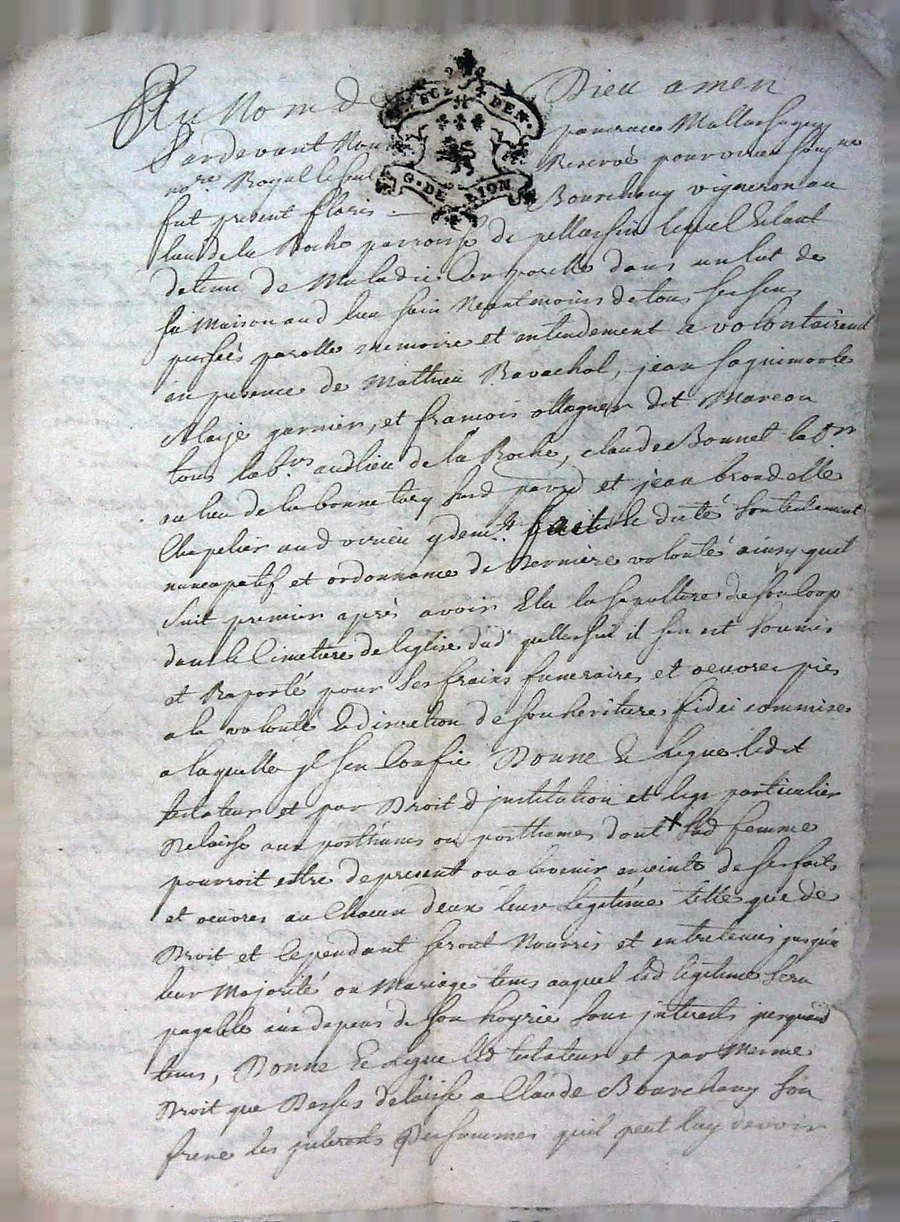 Au Nom d Dieu amen
Pardevant Nou
no.re Royal le seul Reservé pour virieu soug.ne
fut present floris Bourchany vigneron au
lieu de la Roche parroisse de pellussin lequel Estant
detenu de Maladie Corporelle dans un lit de
sa Maison aud lieu sain Neantmoins de tous ses sens
pensées parolle memoire et entendement a volontairem.t
en presence de Mathieu Ravachol, jean
Blaije garnier, et francois ollagnier dit Marcou
tous lab.rs audlieu de la Roche, claude Bonnet lab.r
au lieu de la bonnetary sud et jean brondelle
Chapelier aud virieu ydem.t fait son testament
nuncupatif et ordonnance de Derniere volonté ainsy quil
suit premier après avoir Elu la sepulture de son Corp
dans le Cimetiere de leglise dud pellussin il sen est soumis
et Raporté pour ses frais funeraires et oeuvres pies
a la volonté Et discretion de son heritiere fideicommise
a laquelle jl sen Confie Donne Et Legue ledit
testateur et par Droit d'jnstitution et legs particulier
Delaisse aux posthumes ou posthumes dont sad femme
pourroit estre de present ou a lavenir enceinte de ses faits
et oeuvres au Chacun deux leur legitime telle que de
Droit et Cependant seront Nourris et entretenus jusqu'a
leur Majorité ou Mariage tems auquel lad legitime sera
payable aux depens de son hoyrie sans jnterests jusquaud
tems, Donne Et Legue led testateur et par Mesme
Droit que Dessus delaisse a Claude Bourchany son
frere les jnterests Des sommes quil peut luy devoir
GEN. DE LION